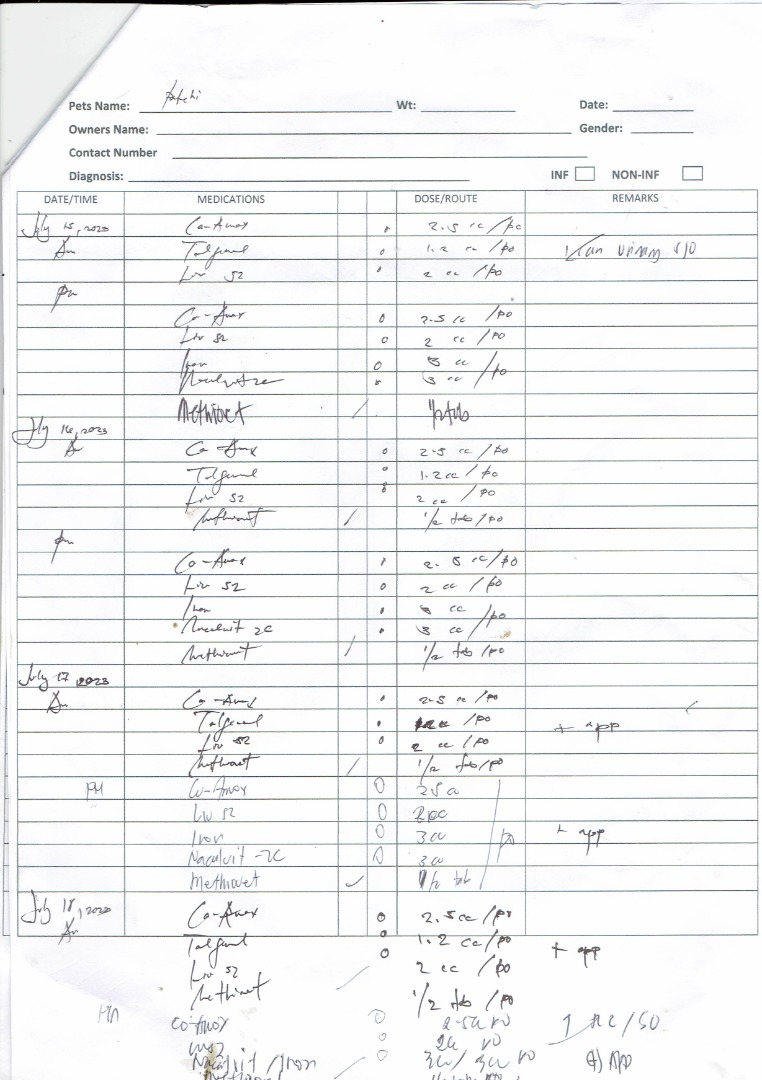 Pets Name: Wt: Date:
Owners Name: Gender:
Contact Number
Diagnosis: INF NON-INF
DATE/TIME MEDICATIONS DOSE/ROUTE REMARKS
July 15, 2023 Co-Amox 2.5 cc/po
Am 1.2 cc/po urinary s/o
Liv 52 2 cc/po
pm
Co-Amox 2.5 cc/po
Liv 52 2 cc/po
Iron 3 cc
3 cc /po
Methiovet / 1/2 tab
July 16, 2023
A Co-Amox 2.5 cc/po
1.2 cc/po
Liv 52 2 cc/po
Methiovet / 1/2 tab/po
pm
Co-Amox 2.5 cc/po
Liv 52 2 cc/po
Iron 3 cc
Nacalvit 2C 3 cc /po
Methiovet / 1/2 tab/po
July 17, 2023
Am Co-Amox 2.5 cc/po
/po + app
Liv 52 2 cc/po
Methiovet / 1/2 tab/po
PM Co-Amox 2.5 cc
Liv 52 2 cc
Iron 3 cc po + app
Nacalvit-2C 3 cc
Methiovet 1/2 tab
July 18, 2023 Co-Amox 2.5 cc/po
Am 1.2 cc/po + app
Liv 52 2 cc/po
Methiovet 1/2 tab/po
PM Co-Amox 2.5cc PO
2cc PO
Nacalvit/Iron 3cc/3cc PO